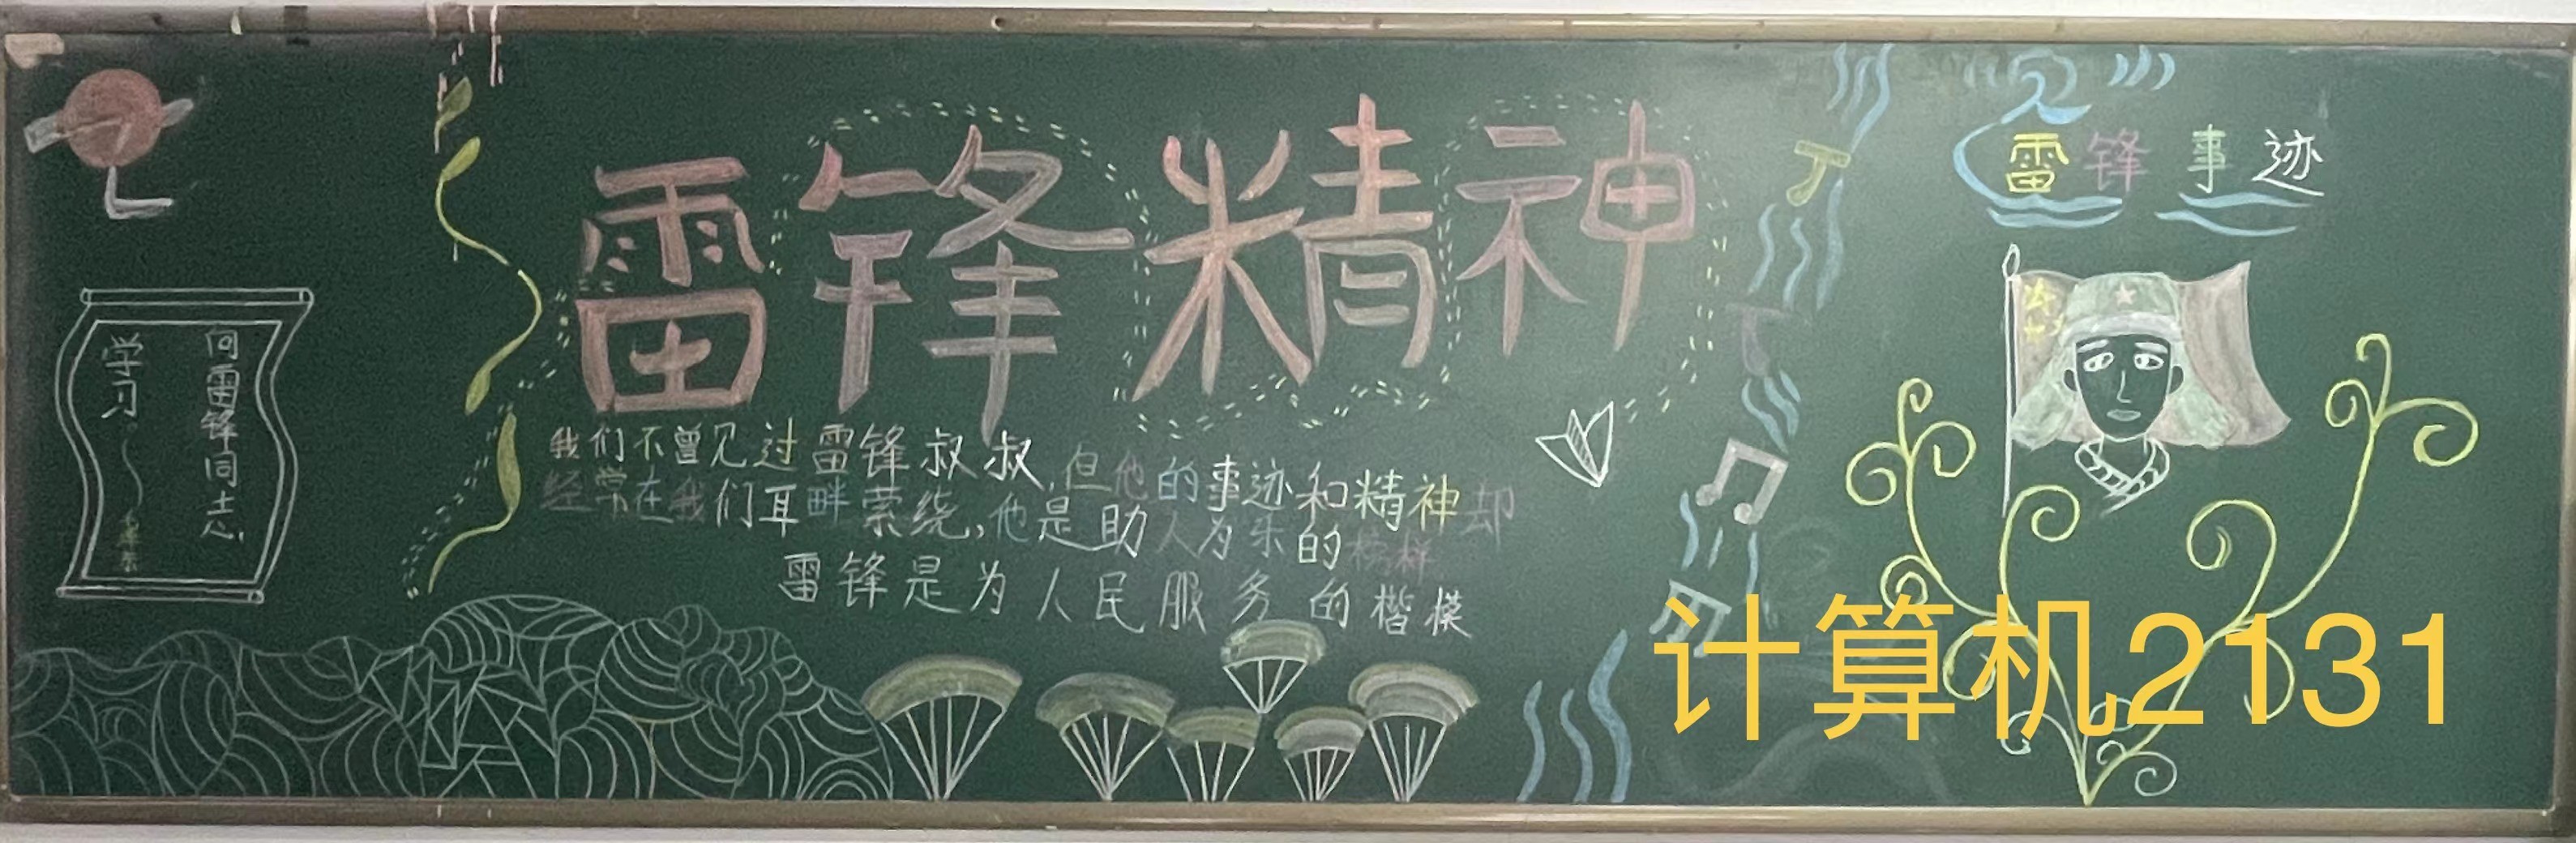 雷锋精神
雷锋事迹
向雷锋同志
学习。
我们不曾见过雷锋叔叔,但他的事迹和精神却
经常在我们耳畔萦绕,他是助人为乐的榜样
雷锋是为人民服务的楷模
计算机2131